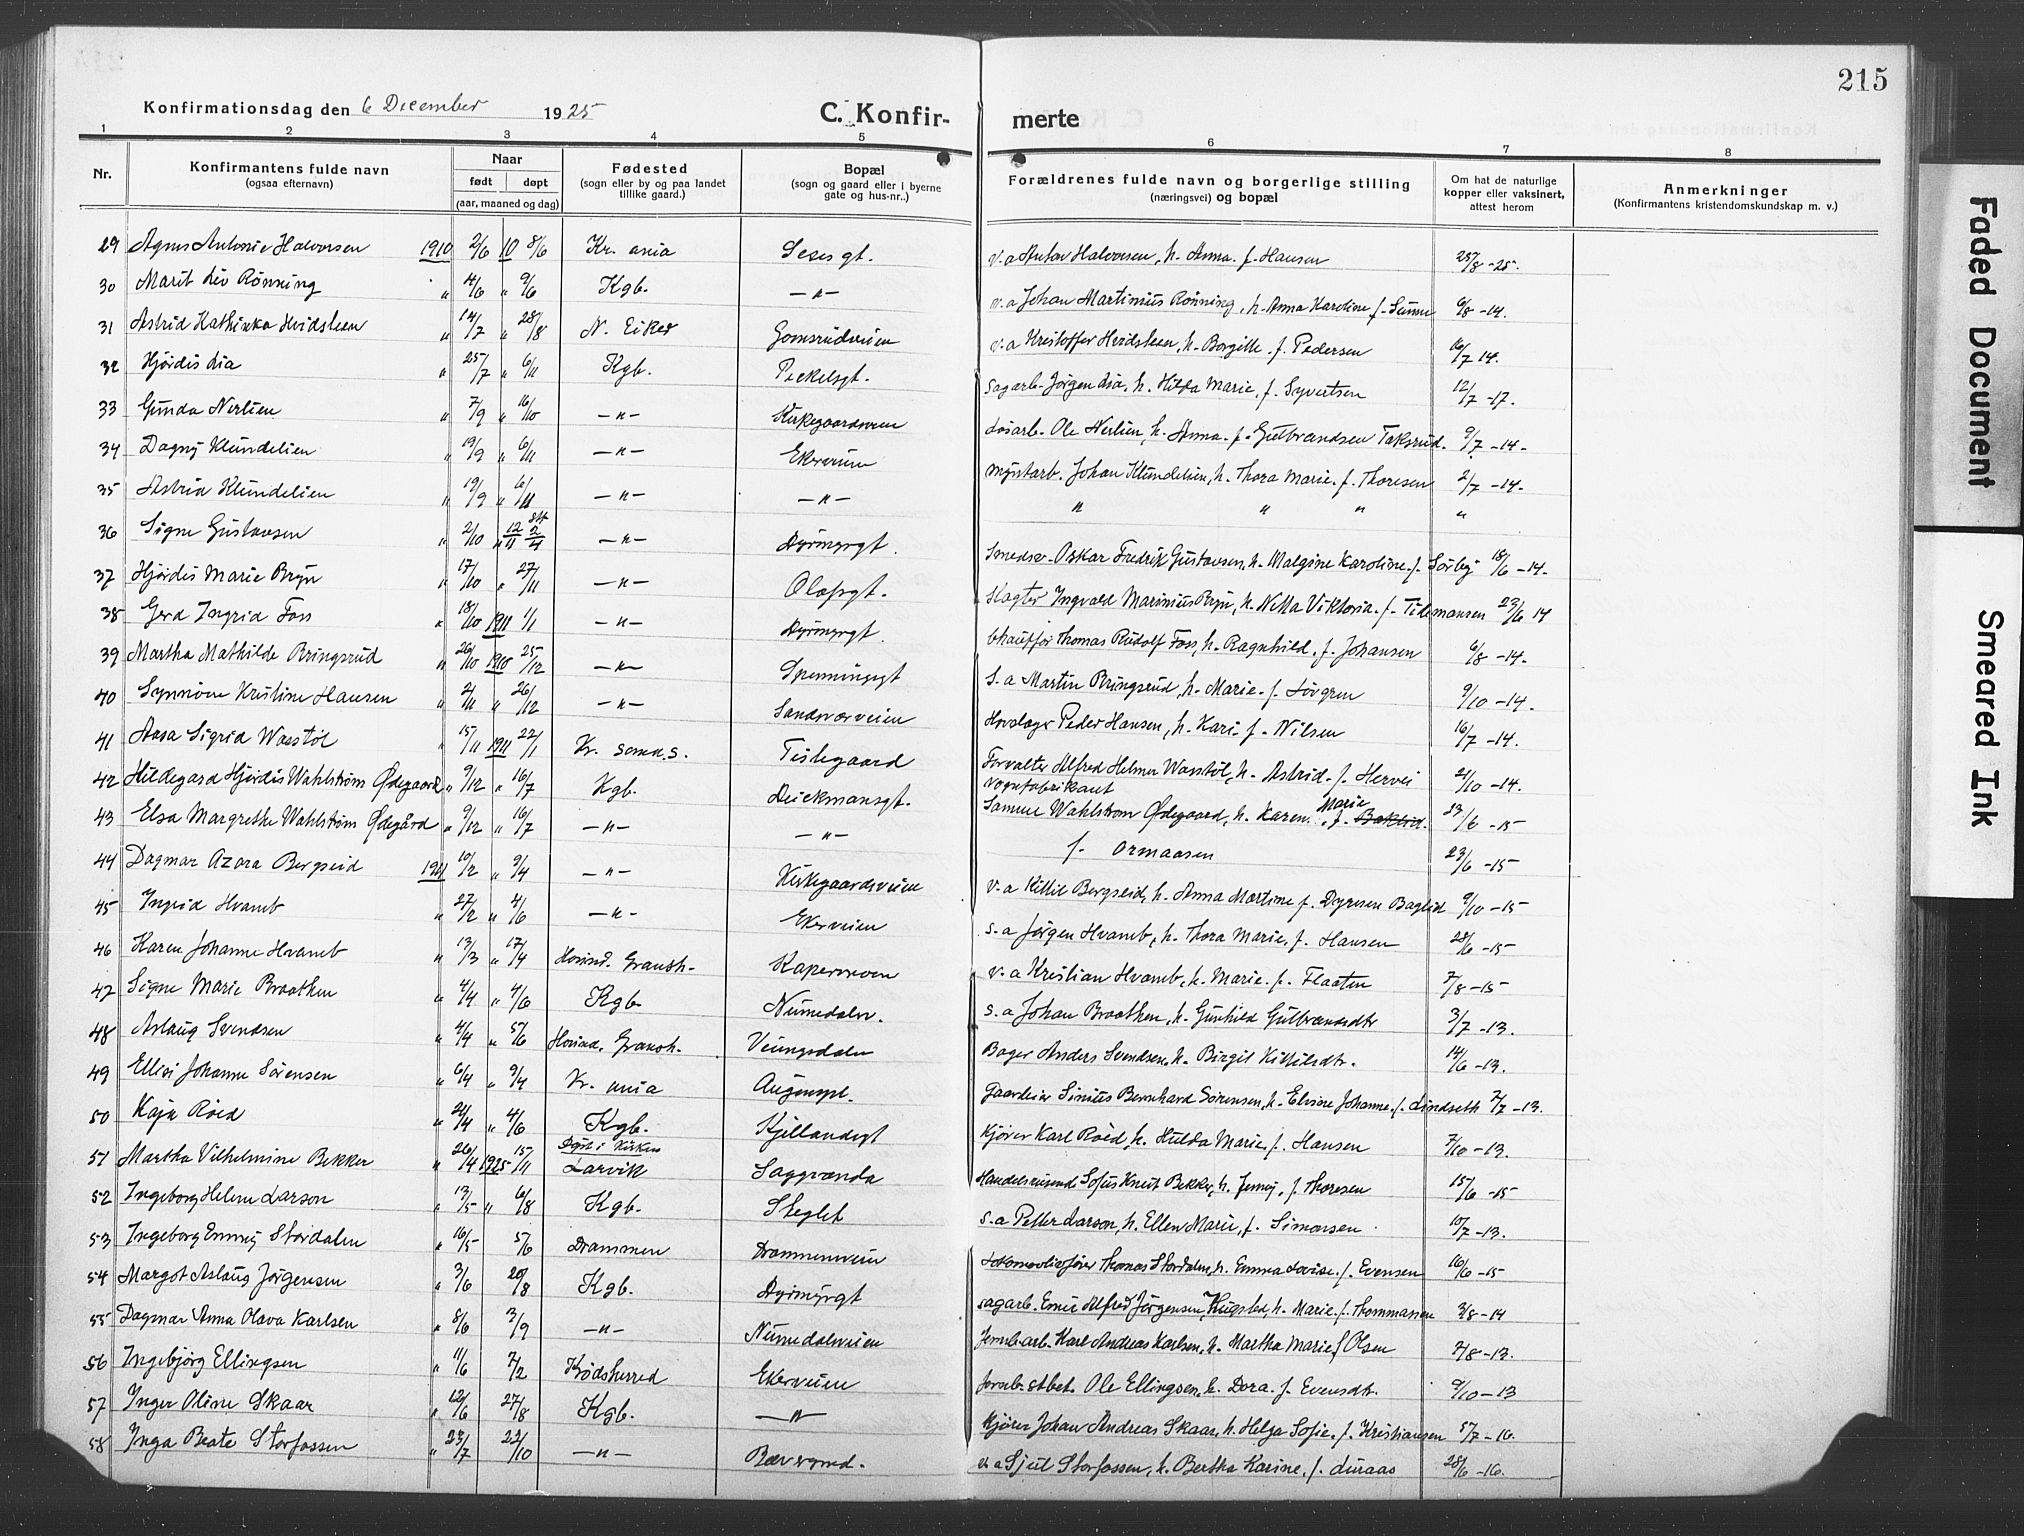 215
Konfirmationsdag den 6 December 1925 C. Konfir- merte
1 2 3 4 5 6 7 8
Nr. Konfirmantens fulde navn (ogsaa efternavn) Naar født døpt (aar, maaned og dag) Fødested (sogn eller by og paa landet tillike gaard.) Bopæl (sogn og gaard eller i byerne gate og hus-nr..) Forældrenes fulde navn og borgerlige stilling (næringsvei) og bopæl Om hat de naturlige kopper eller vaksinert, attest herom Anmerkninger (Konfirmantens kristendomskundskap m. v.)
29 Agnes Antonie Halvorsen 1910 2/6 10 8/6 Kr. ania Seses gt. v.a Anton Halvorsen, h. Anna f. Hansen 25/8 -25.
30 Marit Liv Rønning " 4/6 " 9/6 Kgb. -"- v.a Johan Martinius Rønning, h. Anna Karoline f. Sunne 6/8 -14.
31 Astrid Kathinka Hvidsteen " 14/7 " 28/8 N. Eiker Gomsrudveien v.a Kristoffer Hvidsteen, h. Borgille f. Pedersen 16/7 14.
32 Hjørdis Lia " 25/7 " 6/11 Kgb. Peckelsgt. sagarb. Jørgen Lia, h. Hilda Marie f. Syvertsen 12/7 -17.
33 Gunda Nerlien " 7/9 " 16/10 -"- Kirkegaardsveien Løsarb. Ole Nerlien, h. Anna f. Gulbrandsen Taksrud. 9/7 -14.
34 Dagny Klundelien " 19/9 " 6/11 -"- Ekerveien Myntarb. Johan Klundelien, h. Thora Marie f. Thoresen 2/7 -14.
35 Astrid Klundelien " 19/9 " 6/11 -"- -"- " " " "
36 Signe Gustavsen " 2/10 " 12/11 2/4 -"- Dyrmyrgt. Smedsv. Oskar Fredrik Gustavsen, h. Malgine Karoline f. Sørby 18/6 -14.
37 Hjørdis Marie Bryn " 17/10 " 27/11 -"- Olafsgt. Slagter Ingvald Marinius Bryn, h. Nilla Viktoria f. Tidemansen 23/6 14
38 Gerd Ingrid Foss " 18/10 1911 1/1 -"- Dyrmyrgt. Chauffør Thomas Rudolf Foss, h. Ragnhild f. Johansen 6/8 -14.
39 Martha Mathilde Bringsrud " 26/10 1910 25/12 -"- Spenningsgt S.a Martin Bringsrud, h. Marie f. Løvgren 9/10 -14.
40 Synnøve Kristine Hansen " 2/11 " 26/12 -"- Sandsværveien Hovslager Peder Hansen, h. Kari f. Nilsen 16/7 -14.
41 Aasa Sigrid Waastøl " 15/11 1911 22/1 Kr. sand.s. Tislegaard Forvalter Alfred Helmer Waastøl, h. Astrid f. Hervei 21/10 -14.
42 Hildegard Hjørdis Wahlstrøm Ødegaard " 9/12 " 16/7 Kgb. Dickmansgt. Vognfabrikant Samuel Wahlstrøm Ødegaard, h. Karen Marie f. Baklid. 23/6 -15
43 Elsa Margrethe Wahlstrøm Ødegård " 9/12 " 16/7 -"- -"- f. Ormaasen 23/6 -15
44 Dagmar Azora Bergseid 1911 10/2 " 9/4 -"- Kirkegaardsveien v.a Kittil Bergseid, h. Anna Martine f. Dyresen Baglid 9/10 -15
45 Ingrid Hvamb " 27/2 " 4/6 -"- Ekerveien S.a Jørgen Hvamb, h. Thora Marie, f. Hansen 28/6 -15
46 Karen Johanne Hvamb " 13/3 " 17/4 Hovind. Gransh. Kaperveien v.a Kristian Hvamb, h. Marie f. Flaaten 7/8 -15
47 Signe Marie Braathen " 4/4 " 4/6 Kgb. Numedalsv. S.a Johan Braathen, h. Gunhild Gulbrandsdtr 3/7 -13.
48 Aslaug Svendsen " 4/4 " 5/6 Hovind. Gransh. Veungsdalen Bager Anders Svendsen, h. Birgit Kittilsdtr. 14/6 -13.
49 Ellisi Johanne Sørensen " 6/4 " 9/4 Kr. ania Augensgl. Gaardeier Sinius Bernhard Sørensen, h. Elvine Johanne f. Lindseth 7/7 -13.
50 Kaja Røed " 21/4 " 4/6 Kgb. Kjillandsgt Kjører Karl Røed, h. Hulda Marie, f. Hansen 7/10 -13.
51 Martha Vilhelmine Bekker " 26/4 1925 15/11 Døpt i Kirken Larvik Saggrenda Handelsreisend Sofus Knut Bekker, h. Jenny, f. Thoresen 15/6 -15
52 Ingeborg Helene Larson " 13/5 " 6/8 Kgb. Steglet S.a Petter Larson, h. Ellen Marie, f. Simonsen 10/7 -13.
53 Ingeborg Emmy Stordalen " 16/5 5/6 Drammen Drammenveien Lokomotivfører Thomas Stordalen, h. Emma Lovise f. Evensen 16/6 -15
54 Margot Aslaug Jørgensen " 3/6 20/8 Kgb. Dyrmyrgt sagarb. Emil Alfred Jørgensen, Hugsted, h. Marie f. Thommassen 3/8 -14
55 Dagmar Anna Olava Karlsen " 8/6 3/9 -"- Numedalsveien Jernb.arb. Karl Andreas Karlsen, h. Martha Marie f. Olsen 7/8 -13.
56 Ingebjørg Ellingsen " 11/6 7/2 Krødsherred Ekerveien Jernb. stbet. Ole Ellingsen, h. Dora f. Evensdtr. 9/10 -13
57 Inger Oline Skaar " 12/6 27/8 Kgb. -"- Kjører Johan Andreas Skaar, h. Helga Sofie f. Kristiansen 5/7 -16.
58 Inga Beate Storfossen " 23/7 22/10 -"- Bævergrend. v.a Sjul Storfossen, h. Bertha Karine, f. Luraas 28/6 -16.
Faded Document
Smeared Ink